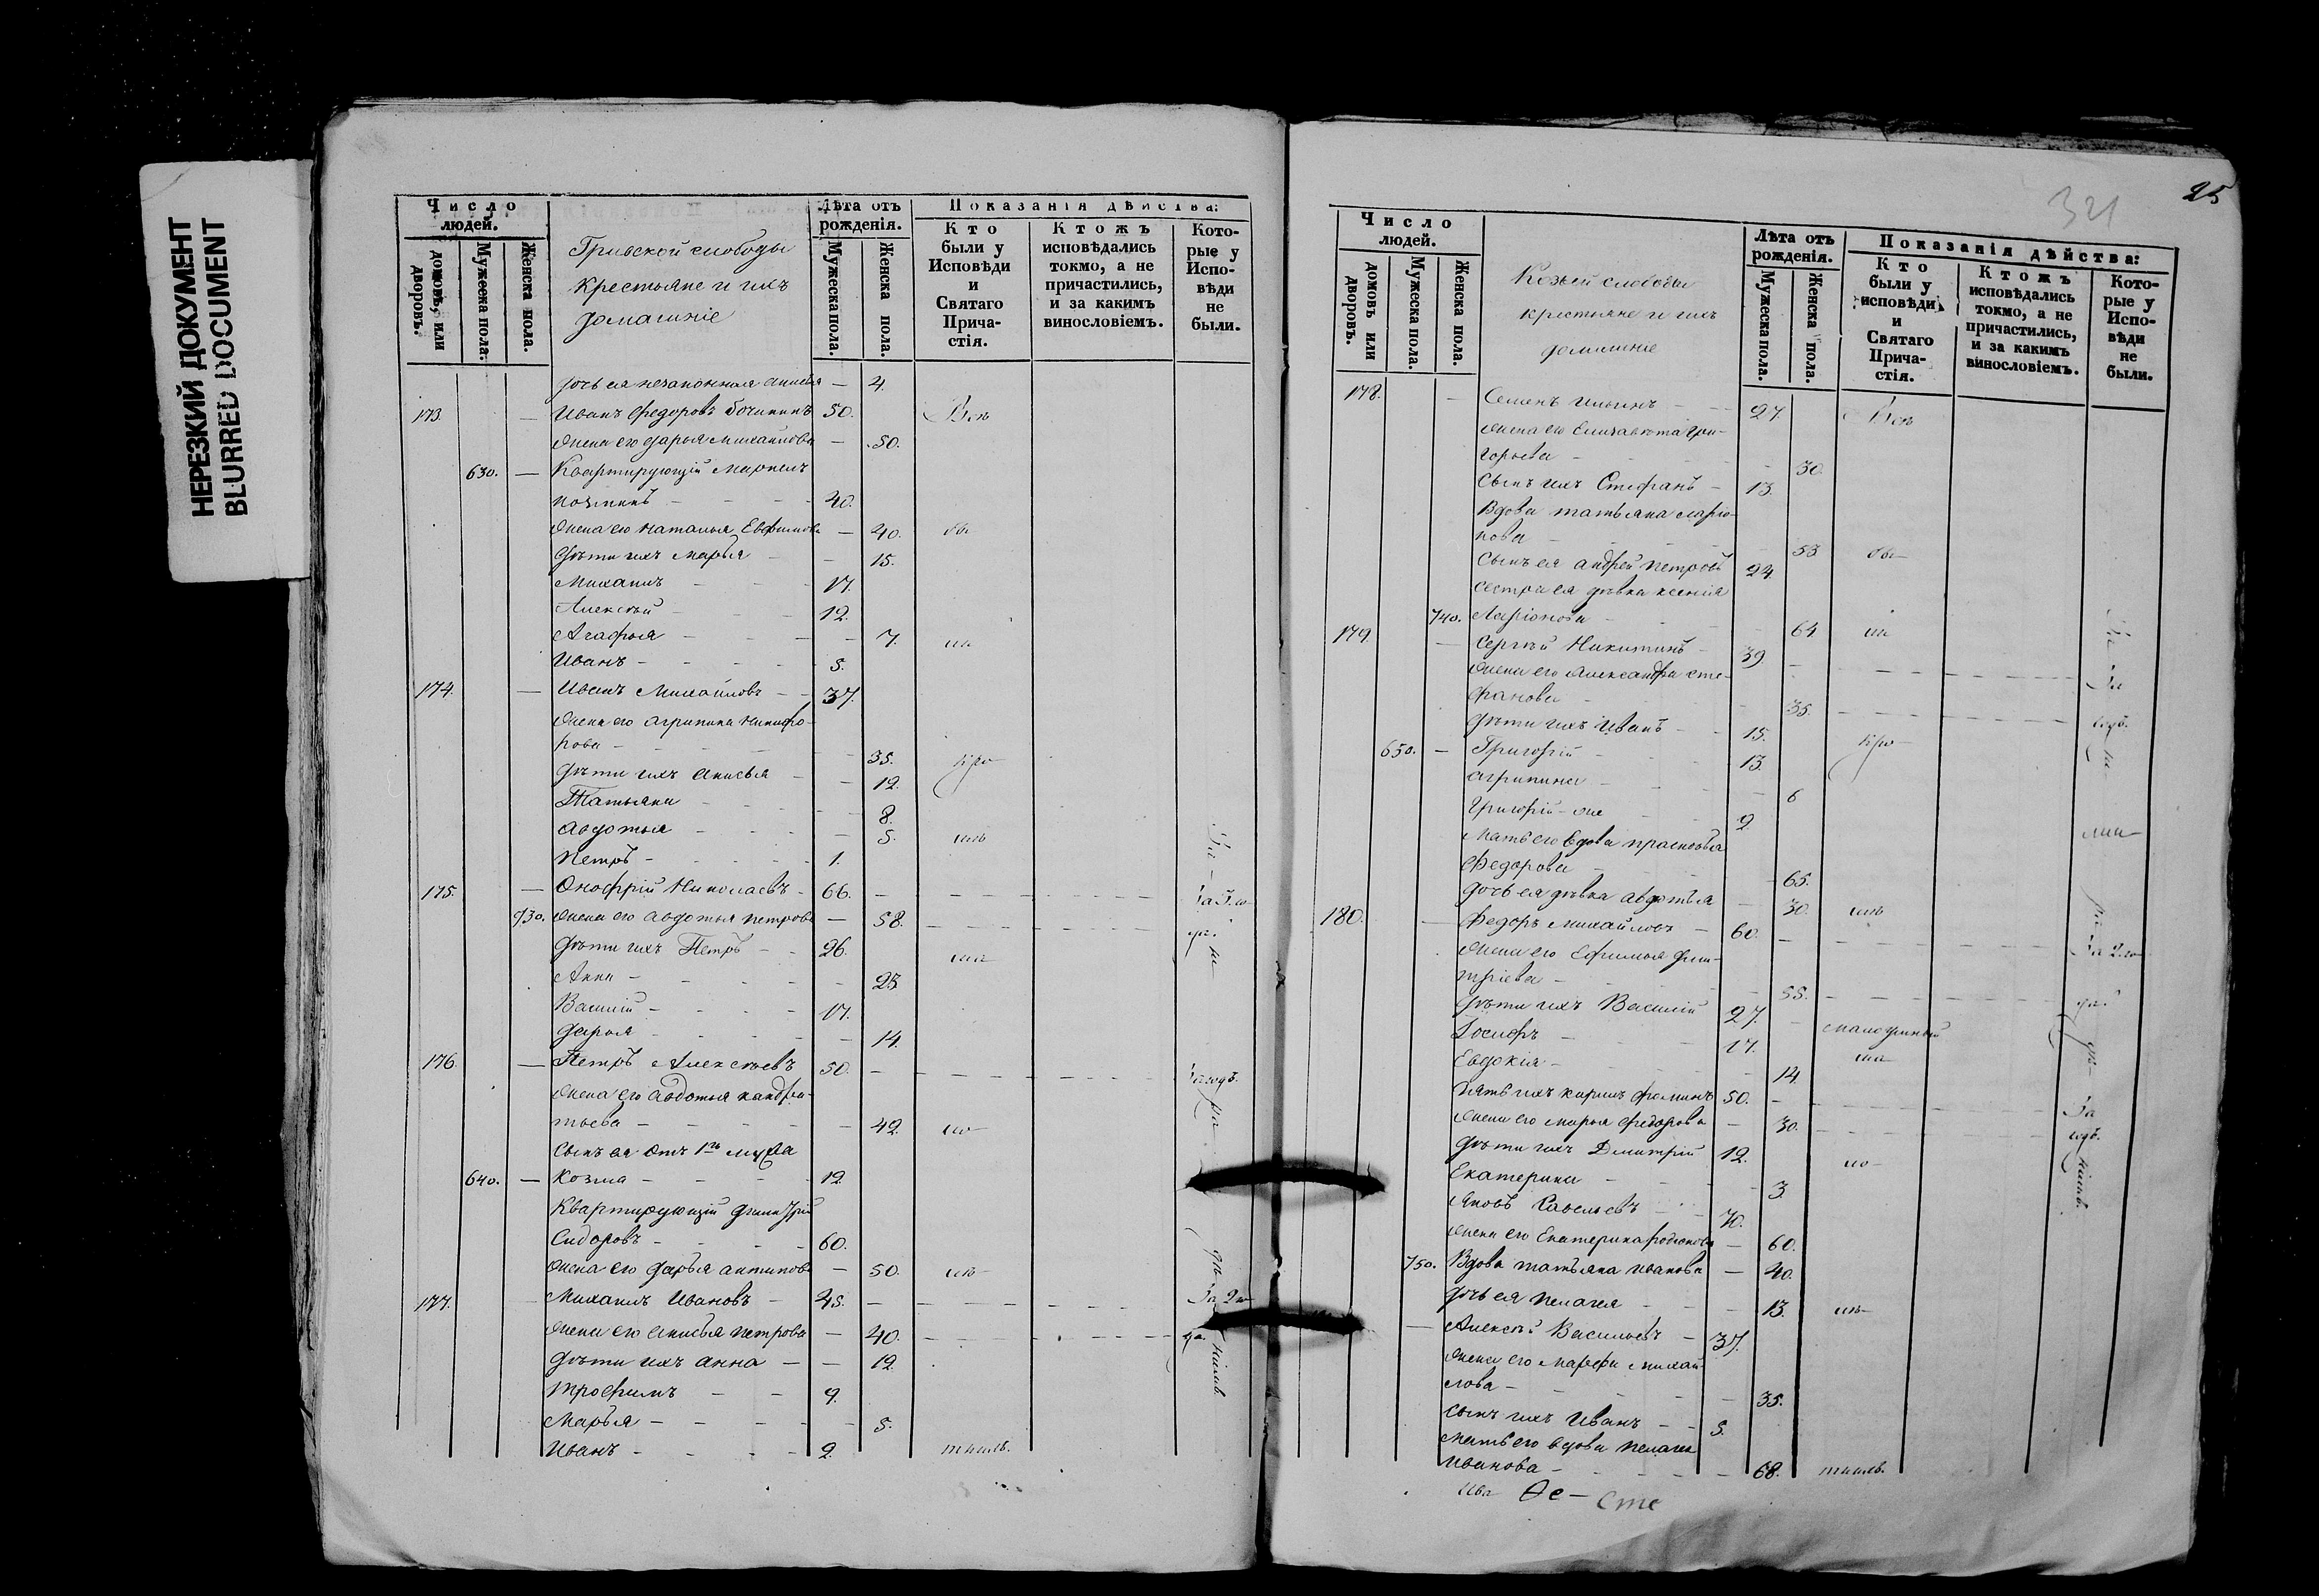 НЕРЕЗКИЙ ДОКУМЕНТ
BLURRED DOCUMENT
Число людей.
домовъ, или дворовъ.
Мужеска пола.
Женска пола.
слободы
Крестьяне и ихъ
домашніе
Лѣта отъ рожденія.
Мужеска пола.
Женска пола.
Показанія дѣйства:
Кто были у Исповѣди и Святаго Прича-стія.
Ктожъ исповѣдались токмо, а не причастились, и за какимъ винословіемъ.
Кото-рые у Испо-вѣди не были.
дочь ея незаконная Анисья — 4.
173. — Иванъ Федоровъ 50.
Жена его Дарья Михайлова — 50.
630. — Квартирующій
40.
Жена его Наталья Евфимова — 40.
Дѣти ихъ Марья — 15.
Михаилъ 17.
Алексѣй 12.
Агафья — 7.
Иванъ 5.
174. — Иванъ Михайловъ 37.
Жена его Агрипина Никифо-
рова — 35.
Дѣти ихъ Анисья — 12.
Татьяна — 8.
Авдотья — 5.
Петръ 1.
175. — Онофрій Николаевъ 66. — За 3.
730. Жена его Авдотья Петрова — 58.
Дѣти ихъ Петръ 26.
Анна — 23.
Василій 17.
Дарья — 14.
176. — Петръ Алексѣевъ 50. — За годъ.
Жена его Авдотья Кандра-
тьева — 42.
Сынъ ея отъ 1го мужа
640. — Козма 12.
Квартирующій Димитрій
Сидоровъ 60.
Жена его Дарья Антипова — 50.
177. — Михаилъ Ивановъ 45. — За 2
Жена его Анисья Петрова — 40. да.
Дѣти ихъ Анна — 12.
Трофимъ 9.
Марья — 5.
Иванъ 2.
321
25
Число людей.
домовъ или дворовъ.
Мужеска пола.
Женска пола.
Козьей слободы
крестьяне и ихъ
домашніе
Лѣта отъ рожденія.
Мужеска пола.
Женска пола.
Показанія дѣйства:
Кто были у исповѣди и Святаго Прича-стія.
Ктожъ исповѣдались токмо, а не причастились, и за какимъ винословіемъ.
Кото-рые у Испо-вѣди не были.
178. — Семенъ Ильинъ 27.
Жена его Елизавета Гри-
горьева — 30.
Сынъ ихъ Стефанъ 13.
Вдова Татьяна Ларіо-
нова — 53
Сынъ ея Андрей Петровъ 24
Сестра ея дѣвка Ксенія
740. Ларіонова — 64
179. — Сергѣй Никитинъ 39 — За
Жена его Александра Сте-
фанова — 35. годъ.
Дѣти ихъ Иванъ 15.
650. — Григорій 13.
Агрипина — 6
Григорій же 2
Мать его вдова Прасковья
Федорова — 65.
Дочь ея дѣвка Авдотья — 30.
180. — Федоръ Михайловъ 60. — За 2.
Жена его Ефимья Дми-
тріева — 55. да.
Дѣти ихъ Василій 27. — малоумный
Іосифъ 17.
Евдокія — 14.
Зять ихъ Кирилъ Фоминъ 50. — За
Жена его Марья Федорова — 30. годъ.
Дѣти ихъ Дмитрій 12.
Екатерина — 3
Яковъ Савельевъ 70.
Жена его Екатерина Родіонова — 60.
750. Вдова Татьяна Иванова — 40.
Дочь ея Пелагея — 13.
— Алексѣй Васильевъ 37.
Жена его Марфа Михай-
лова — 35.
Сынъ ихъ Иванъ 5.
Мать его вдова Пелагея
Иванова — 68.